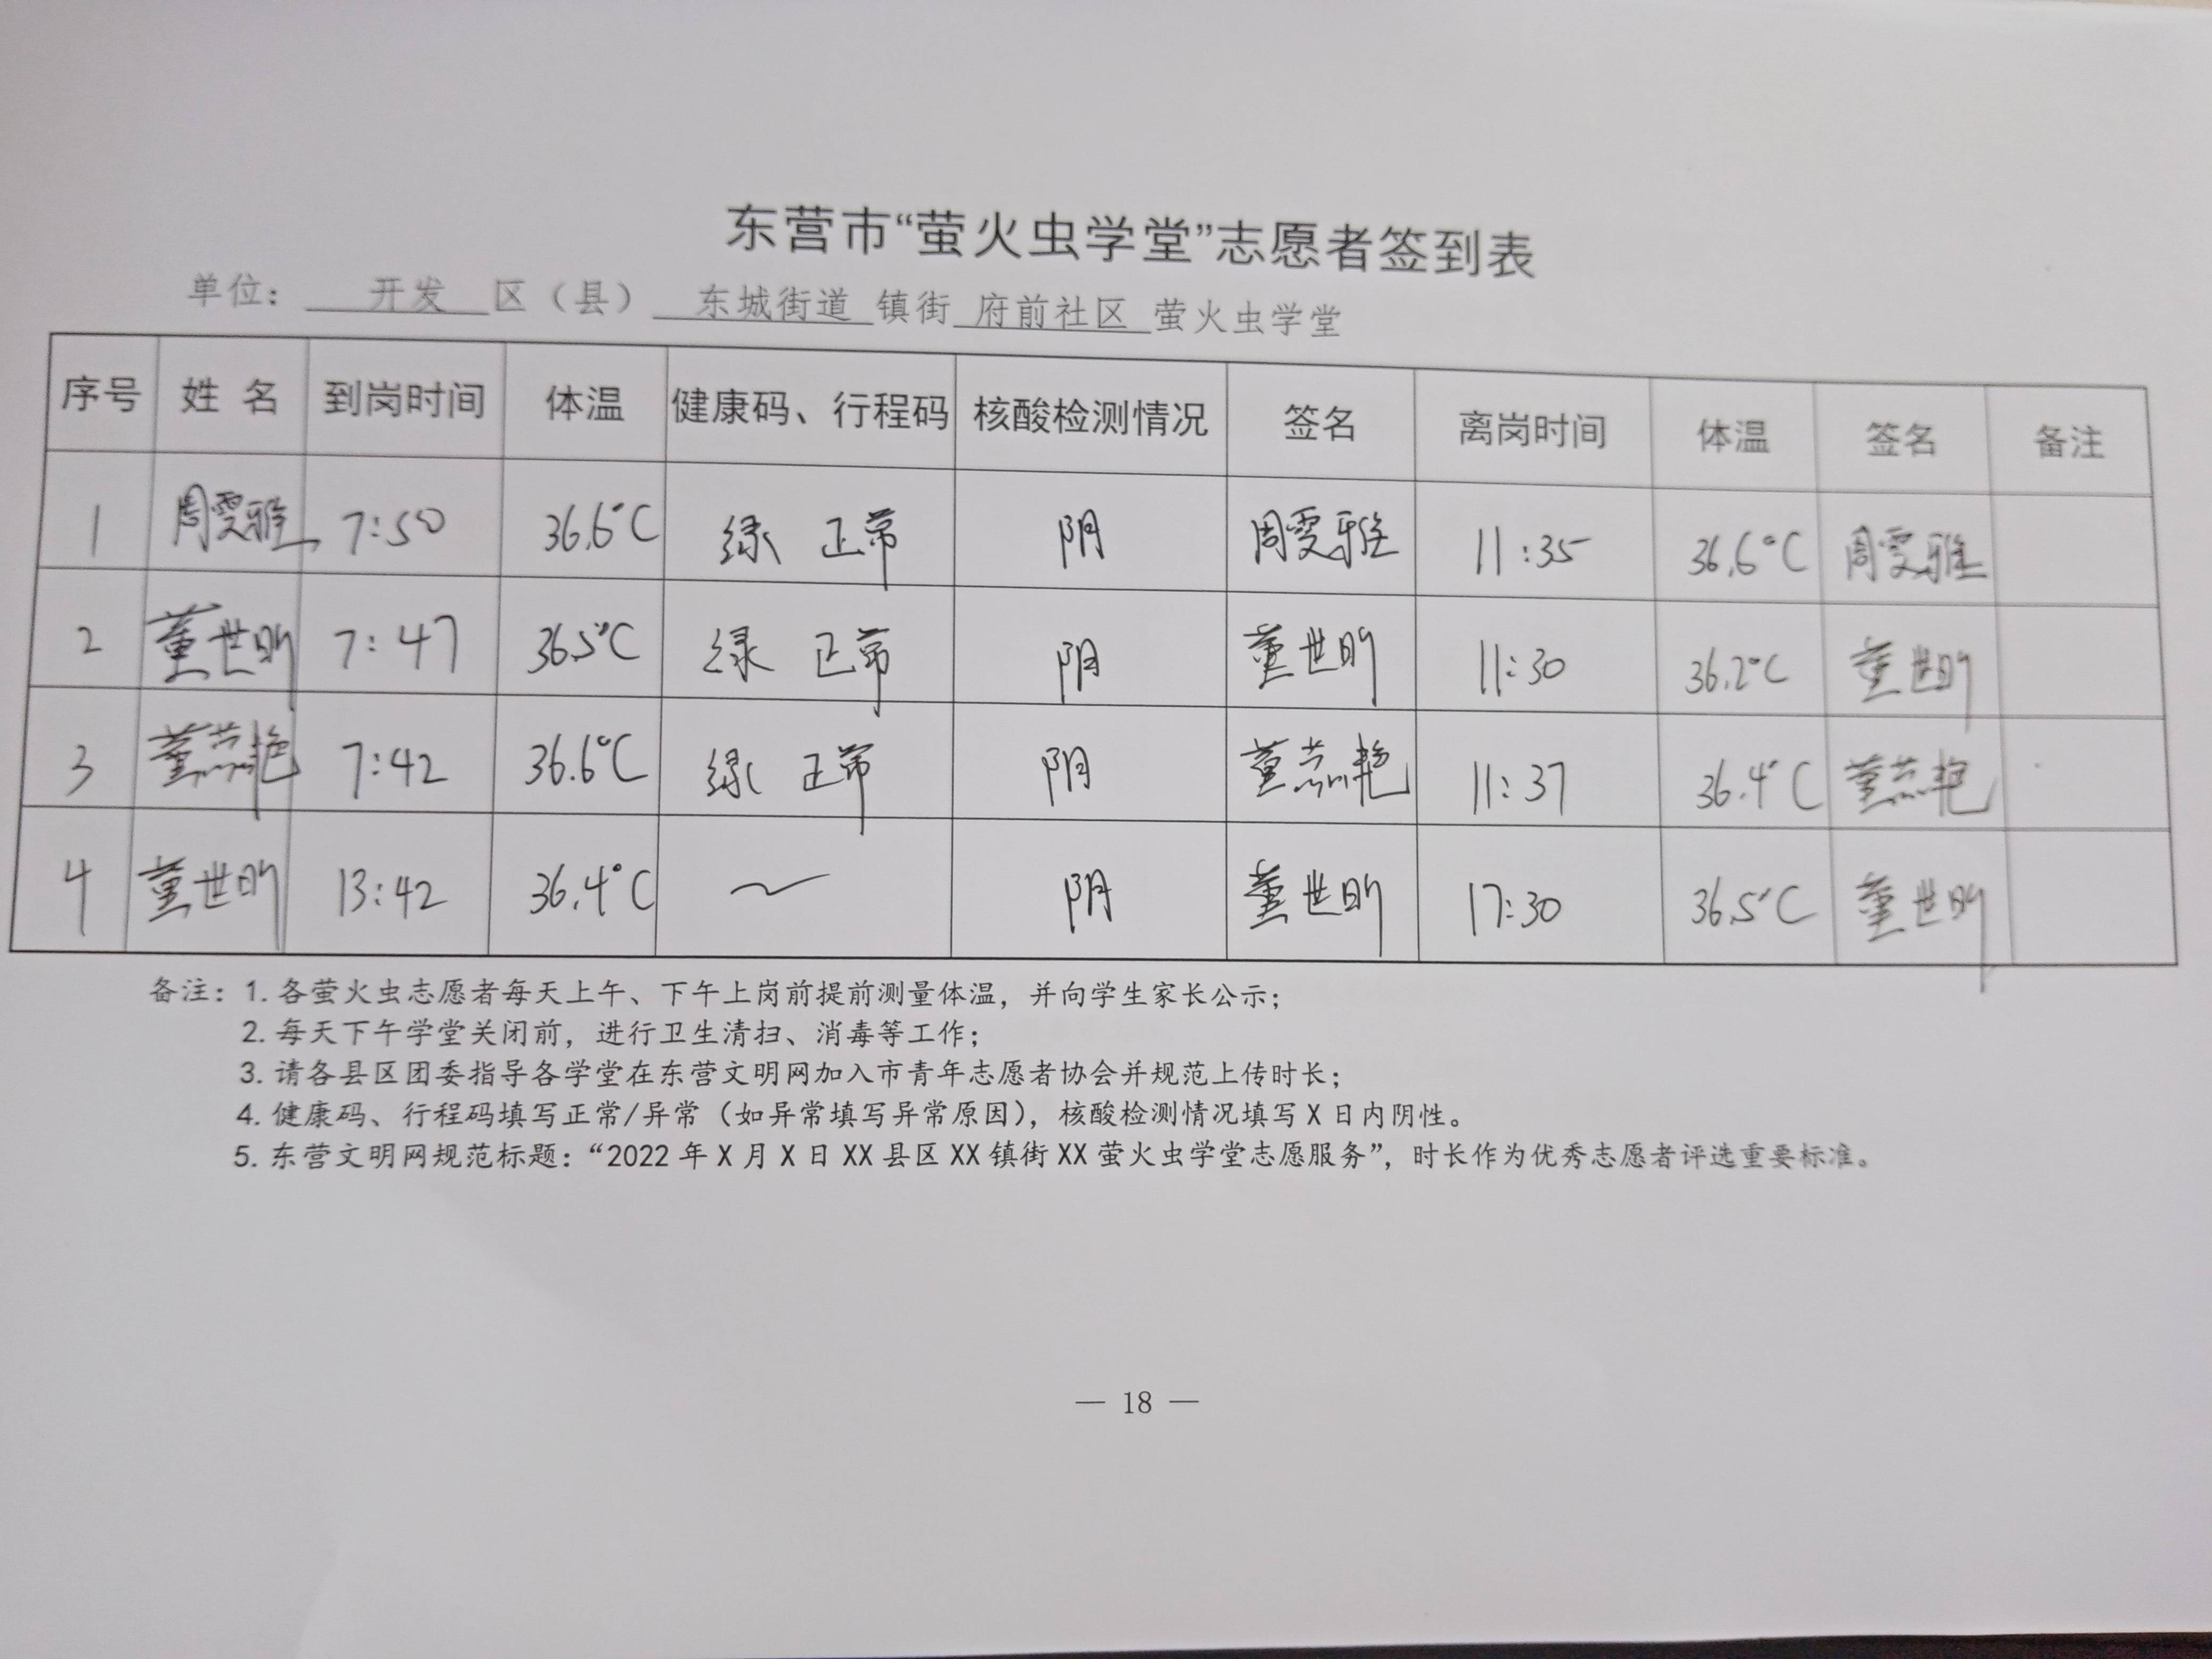 东营市“萤火虫学堂”志愿者签到表
单位： 开发 区（县） 东城街道 镇街 府前社区 萤火虫学堂
序号 姓 名 到岗时间 体温 健康码、行程码 核酸检测情况 签名 离岗时间 体温 签名 备注
1 周雯雅 7:50 36.6°C 绿 正常 阴 周雯雅 11:35 36.6°C 周雯雅
2 董世昀 7:47 36.5°C 绿 正常 阴 董世昀 11:30 36.2°C 董世昀
3 董 艳 7:42 36.6°C 绿 正常 阴 董 艳 11:37 36.4°C 董 艳
4 董世昀 13:42 36.4°C ~ 阴 董世昀 17:30 36.5°C 董世昀
备注：1. 各萤火虫志愿者每天上午、下午上岗前提前测量体温，并向学生家长公示；
2. 每天下午学堂关闭前，进行卫生清扫、消毒等工作；
3. 请各县区团委指导各学堂在东营文明网加入市青年志愿者协会并规范上传时长；
4. 健康码、行程码填写正常/异常（如异常填写异常原因），核酸检测情况填写 X 日内阴性。
5. 东营文明网规范标题：“2022 年 X 月 X 日 XX 县区 XX 镇街 XX 萤火虫学堂志愿服务”，时长作为优秀志愿者评选重要标准。
— 18 —